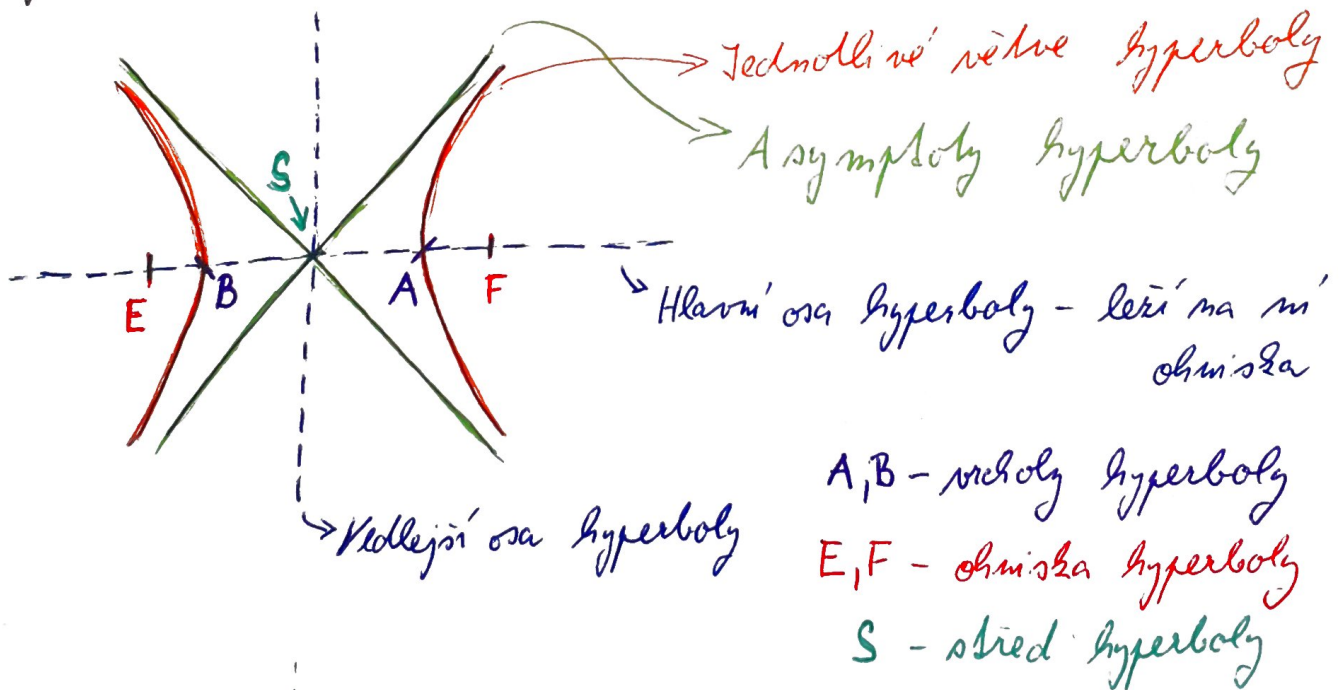 Jednotlivé větve hyperboly
Asymptoty hyperboly
S
E
B
A
F
Hlavní osa hyperboly - leží na ní
ohniska
A,B - vrcholy hyperboly
Vedlejší osa hyperboly
E,F - ohniska hyperboly
S - střed hyperboly